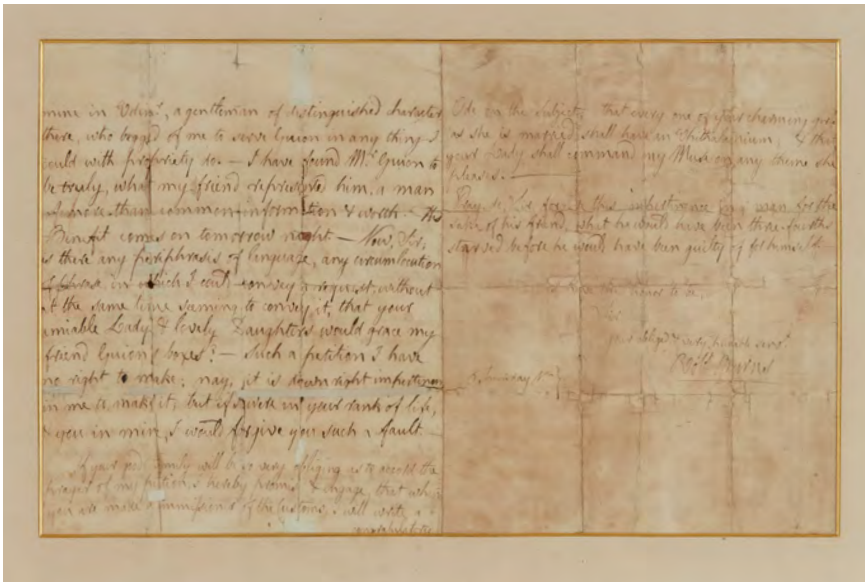 mine in Edinr, a gentleman of distinguished character
there, who begged of me to serve Guion in any thing I
could with propriety do. — I have found Mr Guion to
be truly, what my friend represented him, a man
of more than common information & worth. — His
Benefit comes on tomorrow night — Now, Sir,
is there any periphrasis of language, any circumlocution
of phrase in which I could convey a request, without
at the same time seeming to convey it, that your
amiable Lady & lovely Daughters would grace my
friend Guion's boxes? — Such a petition I have
no right to make; nay, it is downright impertinence
in me to make it; but if I were in your rank of life,
& you in mine, I would forgive you such a fault —
If your good family will be so very obliging as to accord the
prayer of my petition, I hereby promise & engage, that when
you are made a Commissioner of the Customs, I will write a
congratulatory
Ode on the subject; that every one of your charming girls
as she is married, shall have an Epithalamium; & that
your Lady shall command my Muse on any theme she
pleases. —
Pray, Sir, forgive this impertinence in a man for the
sake of his friend, what he would have been three-fourths
starved before he would have been guilty of for himself —
I have the honor to be,
Sir
your obliged & very humble servt
Robt Burns